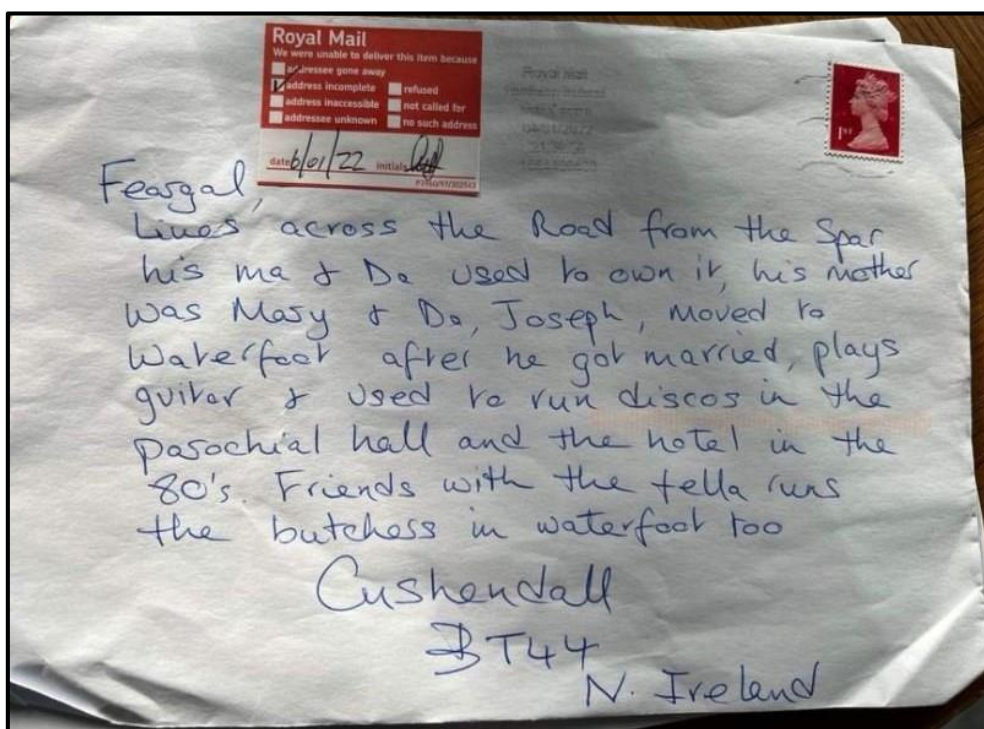 Royal Mail
We were unable to deliver this item because
addressee gone away
address incomplete
refused
address inaccessible
not called for
addressee unknown
no such address
date 6/01/22 initials
Royal Mail
1st
Feargal,
Lives across the Road from the Spar,
his ma & Da used to own it, his mother
was Mary & Da, Joseph, moved to
Waterfoot after he got married, plays
guitar & used to run discos in the
parochial hall and the hotel in the
80's. Friends with the fella runs
the butchers in waterfoot too
Cushendall
BT44
N. Ireland